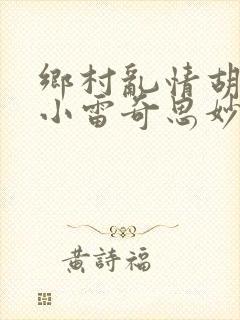 鄉村亂情胡
小雷奇思妙
黃詩福